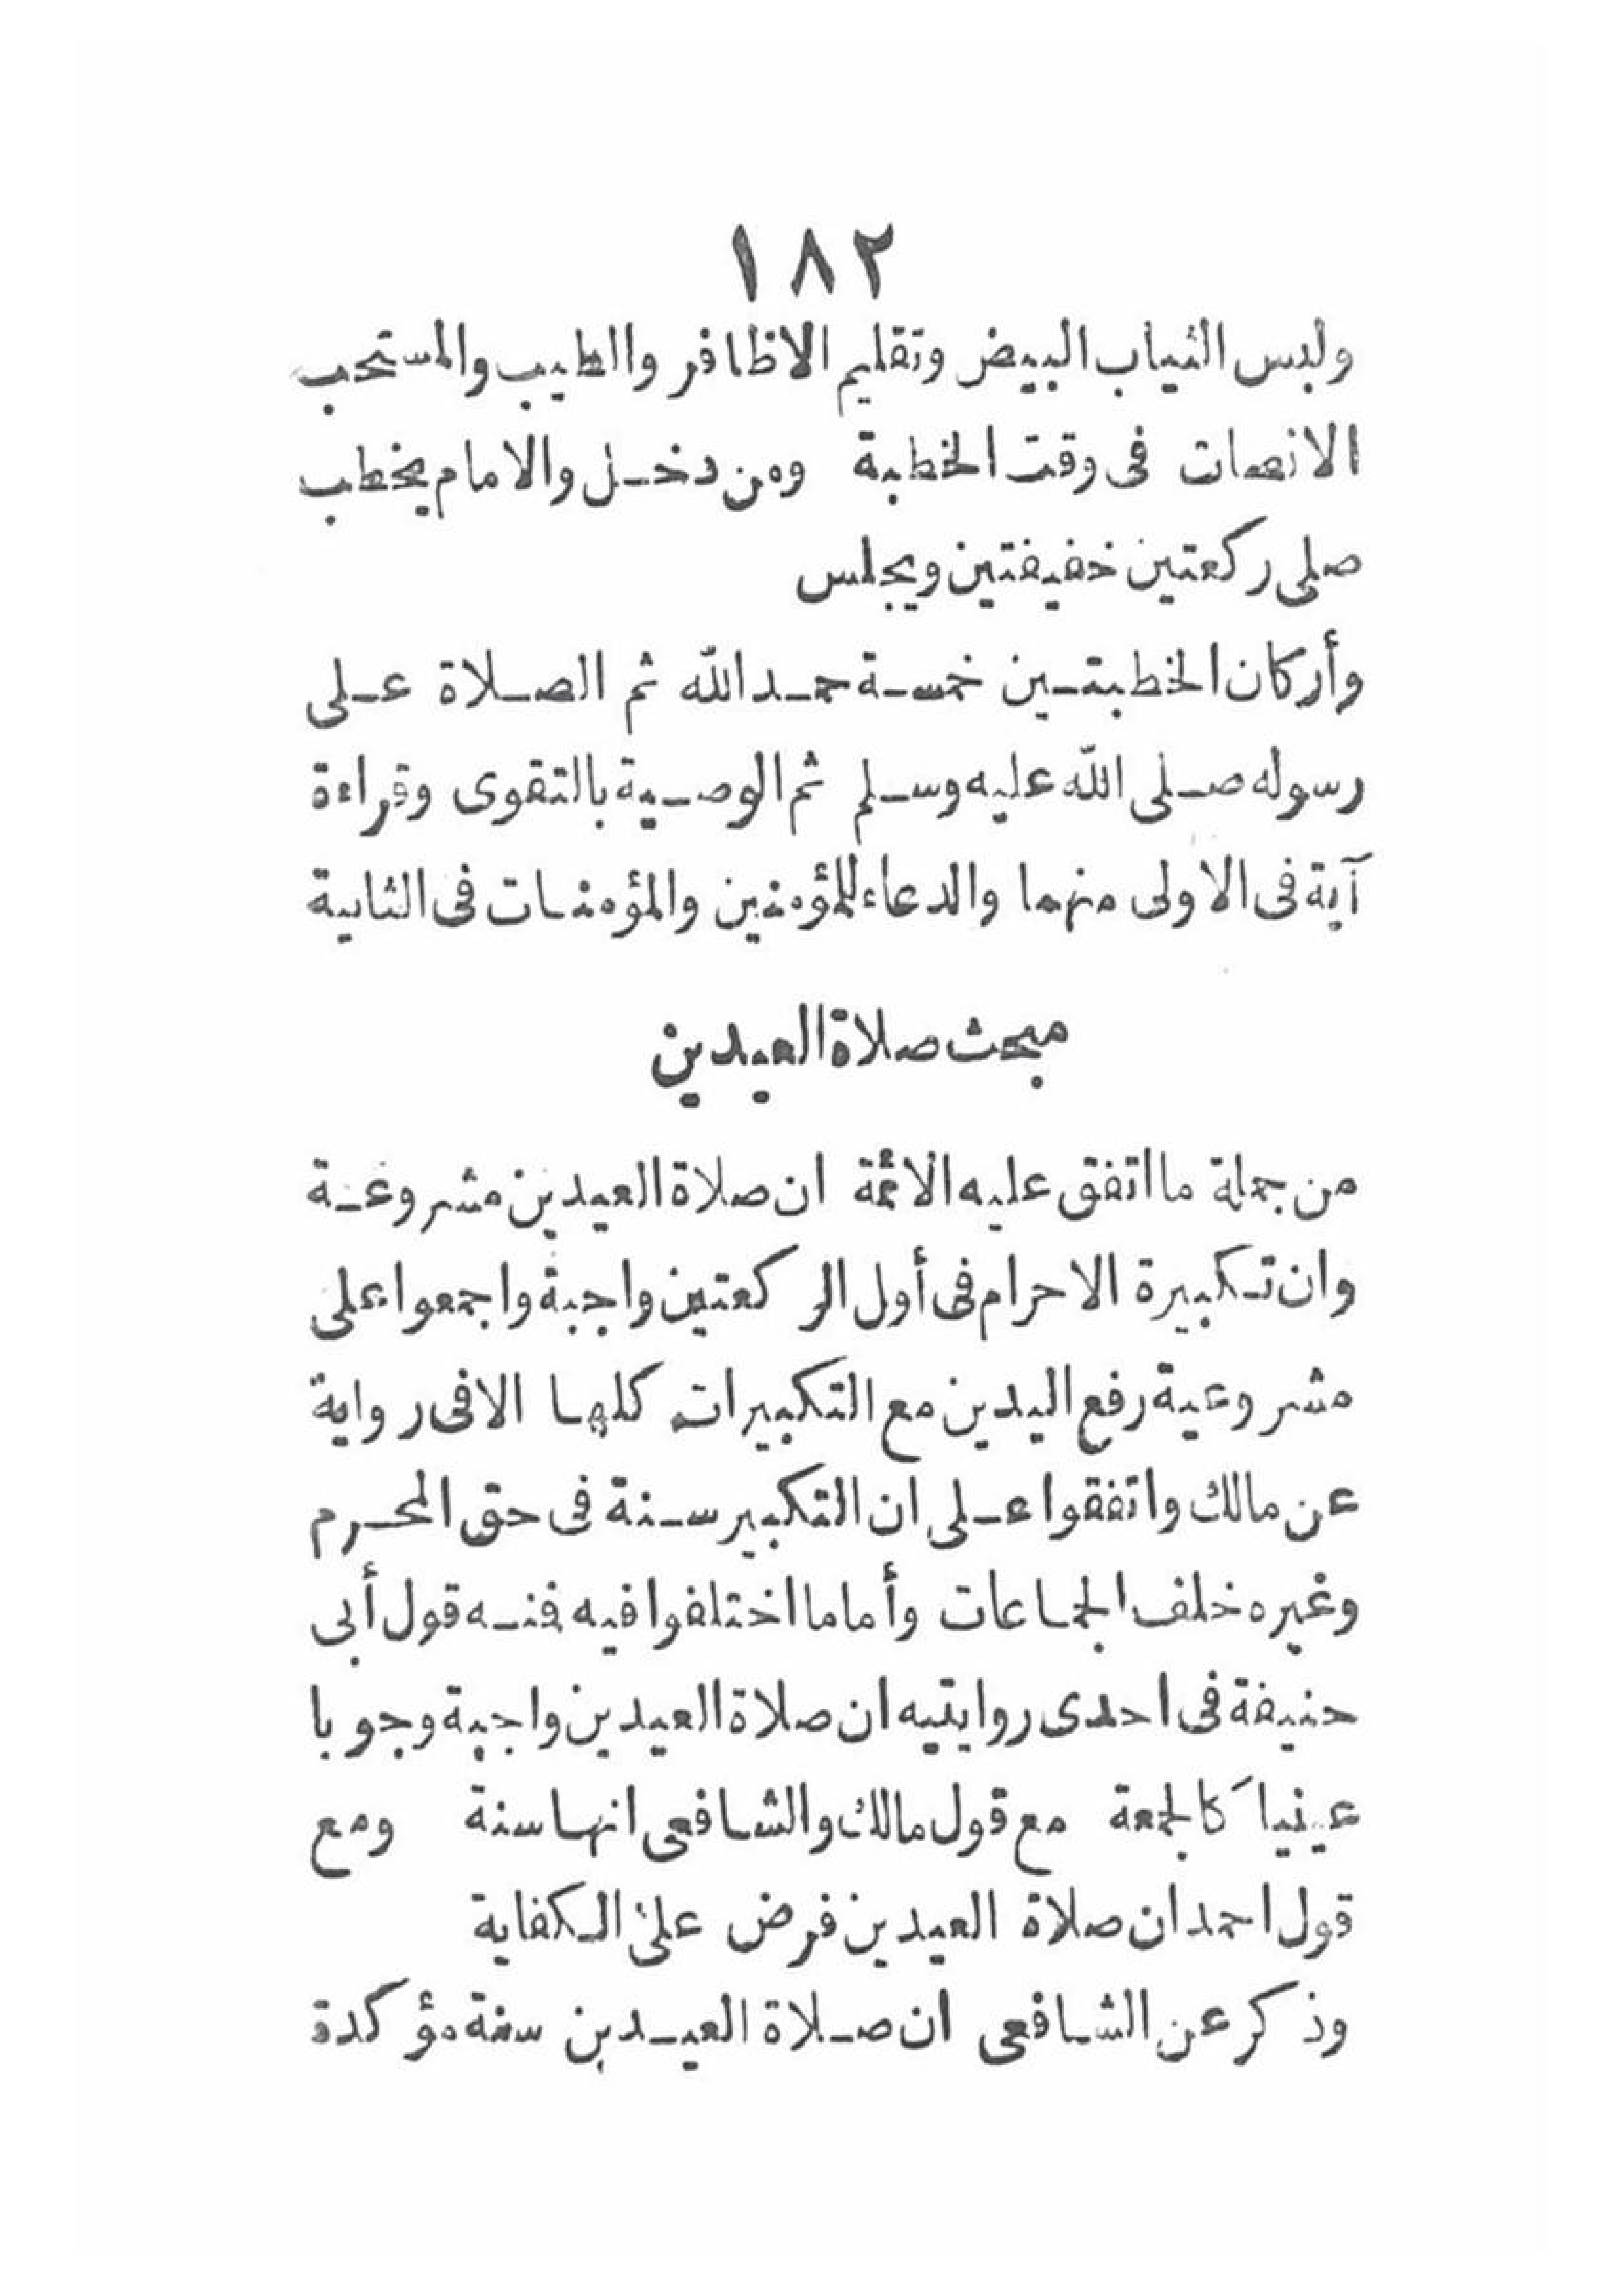 ١٨٢
ولبس الثياب البيض وتقليم الاظافر والطيب والمستحب
الانصات فى وقت الخطبة ومن دخل والامام يخطب
صلى ركعتين خفيفتين ويجلس
وأركان الخطبتين خمسة حمد الله ثم الصلاة على
رسوله صلى الله عليه وسلم ثم الوصية بالتقوى وقراءة
آية فى الاولى منهما والدعاء للمؤمنين والمؤمنات فى الثانية
مبحث صلاة العيدين
من جملة ما اتفق عليه الائمة ان صلاة العيدين مشروعة
وان تكبيرة الاحرام فى أول الركعتين واجبة واجمعوا على
مشروعية رفع اليدين مع التكبيرات كلها الا فى رواية
عن مالك واتفقوا على ان التكبير سنة فى حق المحرم
وغيره خلف الجماعات وأما ما اختلفوا فيه فمنه قول أبى
حنيفة فى احدى روايتيه ان صلاة العيدين واجبة وجوبا
عينيا كالجمعة مع قول مالك والشافعى انها سنة ومع
قول احمد ان صلاة العيدين فرض على الكفاية
وذكر عن الشافعى ان صلاة العيدين سنة مؤكدة